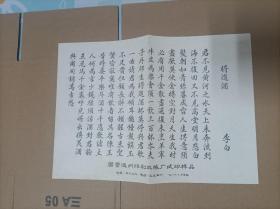 將進酒
李白
君不見黃河之水天上來奔流到
海不復回又不見高堂明鏡悲白
髮朝如青絲暮成雪人生得意須
盡歡莫使金樽空對月天生我材
必有用千金散盡還復來烹羊宰
牛且爲樂會須一飲三百杯岑夫
子丹丘生將進酒
一曲請君爲我傾耳聽鐘鼓饌玉
不足貴但願長醉不願醒古來聖
賢皆寂寞惟有飲者留其名陳王
昔時宴平樂斗酒十千恣歡謔主
人何爲言少錢徑須沽酒對君酌
五花馬千金裘呼兒將出換美酒
與爾同銷萬古愁
國營溫州蠟紙 廠試印樣品
A 05